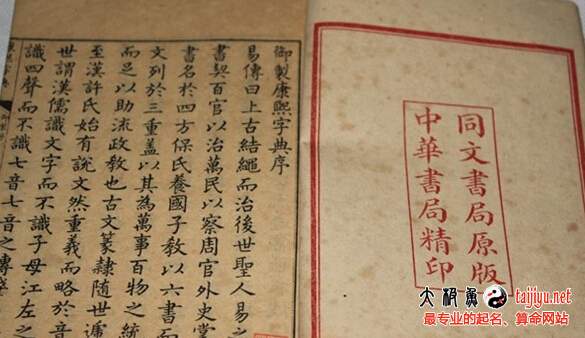 同文書局原版
中華書局精印
御製康熙字典序
易傳曰上古結繩而治後世聖人易之
書契百官以治萬民以察周官外史掌
書名於四方保氏養國子教以六書而
文列於三重盖以其為萬事百物之統
而足以助流政教也古文篆隸隨世遞
至漢許氏始有說文然重義而略於音
世謂漢儒識文字而不識子母江左之
識四聲而不識七音七音之傳肇
太极鱼 taijiyu.net
最专业的起名、算命网站